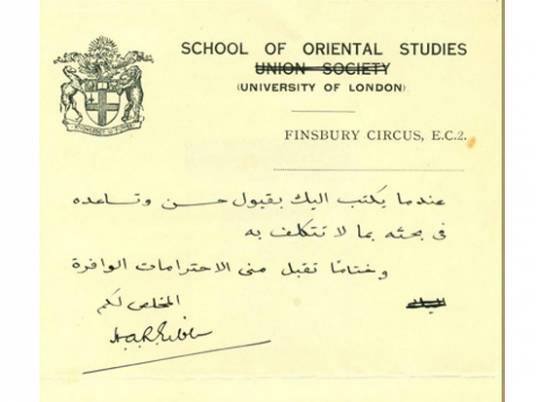 SCHOOL OF ORIENTAL STUDIES
UNION SOCIETY
(UNIVERSITY OF LONDON)
FINSBURY CIRCUS, E.C.2.
عندما يكتب اليك بقبول حسن وتساعده
فى بحثه بما لا تتكلف به
وختامًا تقبل منى الاحترامات الوافرة
المخلص لكم
H.A.R. Gibb